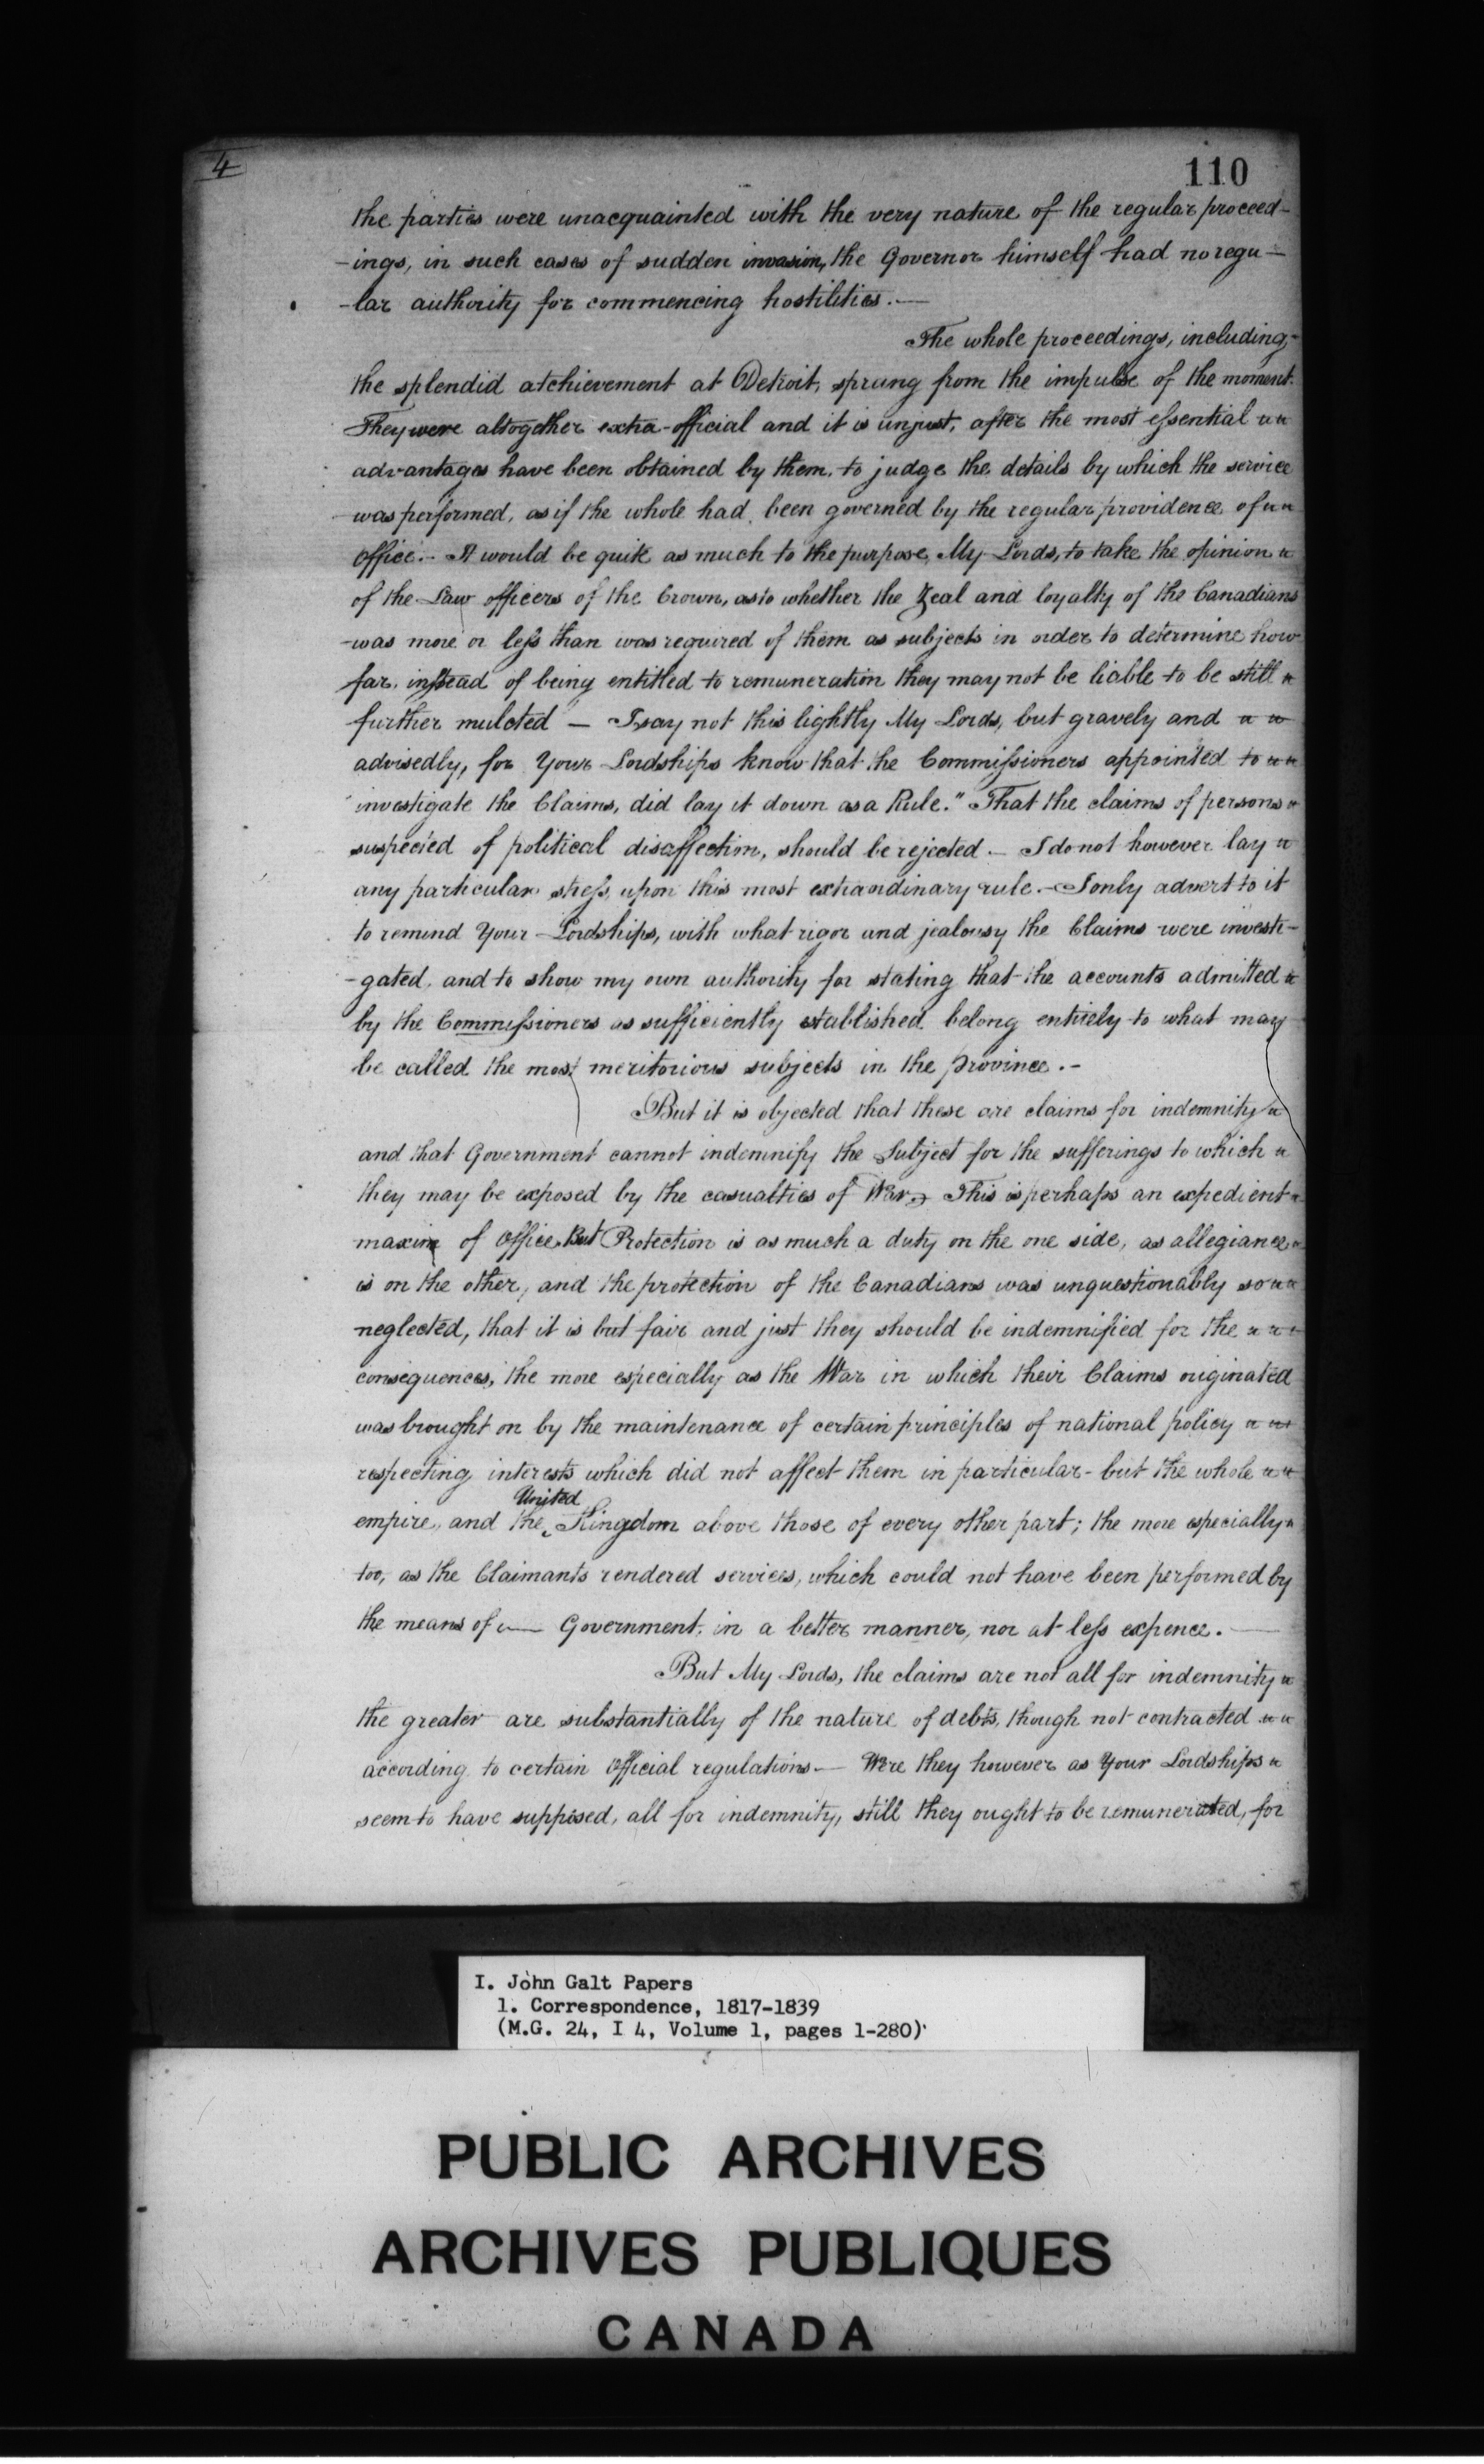 4
110
the parties were unacquainted with the very nature of the regular proceed-
-ings, in such cases of sudden invasion, the Governor himself had no regu-
-lar authority for commencing hostilities.—
The whole proceedings, including,
the splendid atchievement at Detroit, sprung from the impulse of the moment.
They were altogether extra-official and it is unjust, after the most essential
advantages have been obtained by them, to judge the details by which the service
was performed, as if the whole had been governed by the regular providence of
Office.- It would be quite as much to the purpose, My Lords, to take the opinion
of the Law officers of the Crown, as to whether the Zeal and loyalty of the Canadians
was more or less than was required of them as subjects in order to determine how
far, instead of being entitled to remuneration they may not be liable to be still
further mulcted — I say not this lightly My Lords, but gravely and
advisedly, for Your Lordships know that the Commissioners appointed to
investigate the Claims, did lay it down as a Rule." That the claims of persons
suspected of political disaffection, should be rejected.— I do not however lay
any particular stress, upon this most extraordinary rule.- I only advert to it
to remind Your Lordships, with what rigor and jealousy the Claims were investi-
-gated, and to show my own authority for stating that the accounts admitted
by the Commissioners as sufficiently established belong entirely to what may
be called the most meritorious subjects in the province.-
But it is objected that these are claims for indemnity
and that Government cannot indemnify the Subject for the sufferings to which
they may be exposed by the casualties of War. This is perhaps an expedient
maxim of Office. But Protection is as much a duty on the one side, as allegiance
is on the other, and the protection of the Canadians was unquestionably so
neglected, that it is but fair and just they should be indemnified for the
consequences, the more especially as the War in which their Claims originated
was brought on by the maintenance of certain principles of national policy
respecting interests which did not affect them in particular- but the whole
United
empire, and the Kingdom above those of every other part; the more especially
too, as the Claimants rendered services, which could not have been performed by
the means of — Government, in a better manner, nor at less expence.—
But My Lords, the claims are not all for indemnity
the greater are substantially of the nature of debts, though not contracted
according to certain Official regulations.— Were they however as Your Lordships
seem to have supposed, all for indemnity, still they ought to be remunerated, for
I. John Galt Papers
1. Correspondence, 1817-1839
(M.G. 24, I 4, Volume 1, pages 1-280)
PUBLIC ARCHIVES
ARCHIVES PUBLIQUES
CANADA